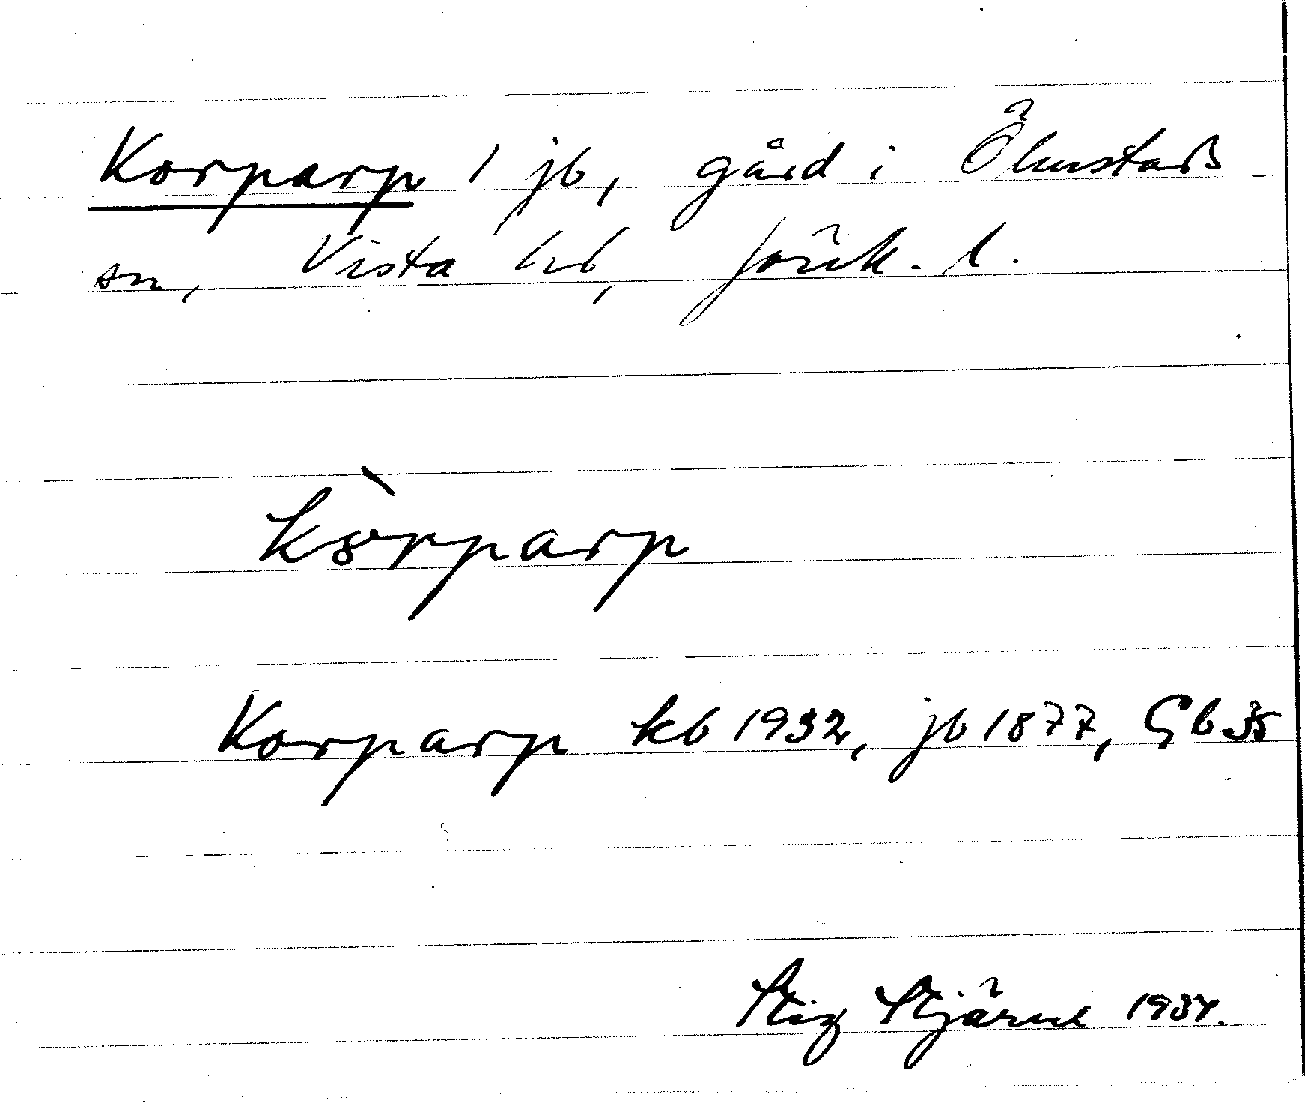 Korparp 1 jb, gård i Ölmstads
sn, Vista hd, Jönk. l.
kòrparp
Korparp kb 1932, jb 1877, Gb 35
Stig Stjärne 1934.